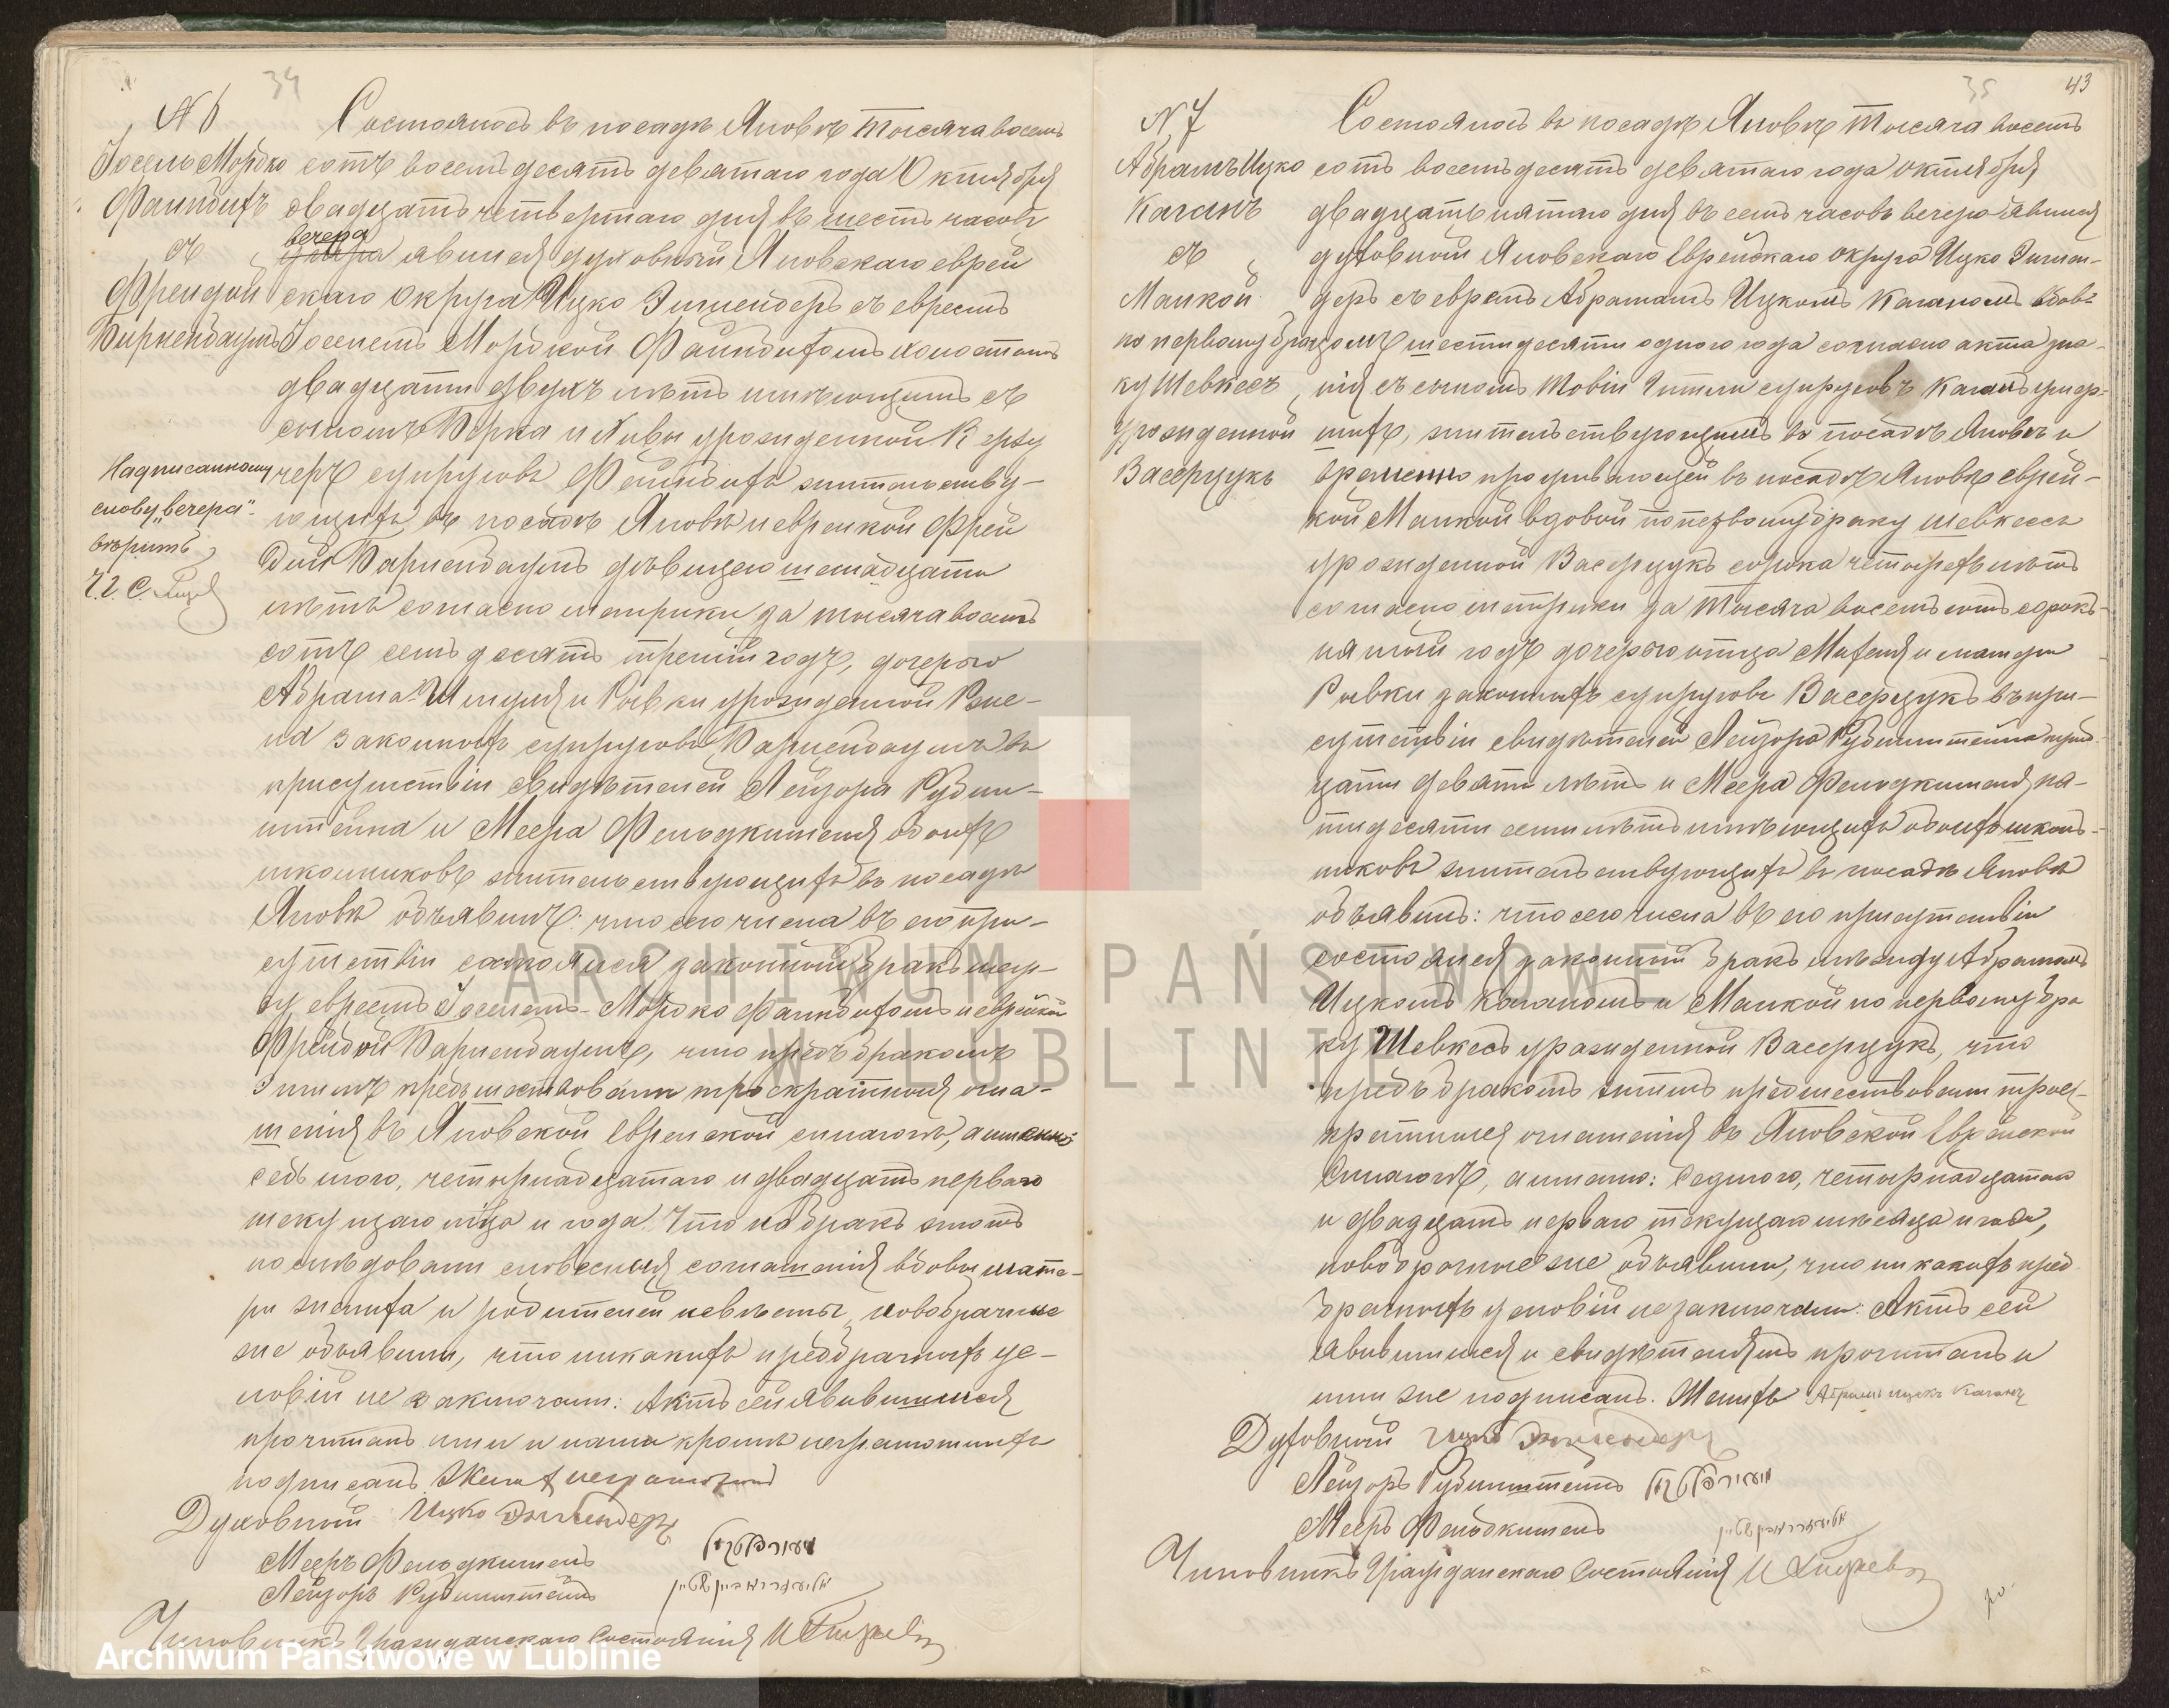 34
N 6
Іосель Мордко
Файнбихъ
съ
Фрейдой
Бирнендаумъ
Состоялось въ посадѣ Яновѣ тысяча восемь
сотъ восемьдесятъ девятаго года Октября
двадцать четвертаго дня въ шесть часовъ
вечера
явился духовный Яновскаго еврей
скаго Округа Ицко Зильцендеръ съ евреемъ
Іоселемъ Мордкой Файнбихомъ холостымъ
двадцати двухъ лѣтъ имѣющимъ съ
сыномъ Берка и Хивы урожденной Кержу
неръ супруговъ Файнбихъ жительству-
ющихъ въ посадѣ Яновѣ и еврейкой Фрей
дой Барнендаумъ дѣвицею шестнадцати
лѣтъ согласно метрики за тысяча восемь
сотъ семьдесятъ третій годъ, дочерью
Абрама и Рывки урожденной
законныхъ супруговъ Барнендаумъ въ
присутствіи свидѣтелей Лейзора Рубин-
штейна и Меера Фельдкишеля обоихъ
школьниковъ жительствующихъ въ посадѣ
Яновѣ объявилъ: что сего числа въ его при-
сутствіи состоялся законный бракъ меж-
ду евреемъ Іоселемъ-Мордко Файнбихомъ и еврейкой
Фрейдой Барнендаумъ, что предъ бракомъ
этимъ предшествовали троекратныя огла-
шенія въ Яновской Еврейской синагогѣ, а именно:
седьмого, четырнадцатаго и двадцать перваго
текущаго мѣсяца и года. Что на бракъ этотъ
послѣдовали словесныя соглашенія вдовы мате-
ри жениха и родителей невѣсты, новобрачные
же объявили, что никакихъ предбрачныхъ ус-
ловій не заключали: Актъ сей явившимся
прочитанъ ими и нами кромѣ неграмотныхъ
подписанъ. Женихъ неграмотный
Надписанному
слову „вечера"
вѣрить
Ч. Г. С.
Духовный Ицко
Мееръ Фельдкишель
Лейзоръ Рубинштейнъ
אליעזר רובינשטיין
Чиновникъ Гражданскаго Состоянія
35
43
N 7
Абрамъ Ицко
Каганъ
съ
Малкой
по первому бра
ку Шевкесъ
урожденной
Васерцукъ
Состоялось въ посадѣ Яновѣ тысяча восемь
сотъ восемьдесятъ девятаго года Октября
двадцать пятаго дня въ семь часовъ вечера явился
духовный Яновскаго Еврейскаго Округа Ицко Зильцен-
деръ съ евреемъ Абрамомъ Ицкомъ Каганомъ вдов-
цомъ шестидесяти одного года согласно акта зна-
нія съ сыномъ Товіи Гитли супруговъ Каганъ умер-
шихъ, жительствующимъ въ посадѣ Яновѣ и
временно проживающей въ посадѣ Яновѣ еврей-
кой Малкой вдовой по первому браку Шевкесъ
урожденной Васерцукъ сорока четырехъ лѣтъ
согласно метрики за тысяча восемьсотъ сорокъ-
пятый годъ дочерью отца Михеля и матери
Рывки законныхъ супруговъ Васерцукъ въ при-
сутствіи свидѣтелей Лейзора Рубинштейна
цати девяти лѣтъ и Меера Фельдкишеля пя-
тидесяти семи лѣтъ имѣющихъ обоихъ школь-
никовъ жительствующихъ въ посадѣ Яновѣ
объявилъ: что сего числа въ его присутствіи
состоялся законный бракъ между Абрамомъ
Ицкомъ Каганомъ и Малкой по первому бра
ку Шевкесъ урожденной Васерцукъ, что
предъ бракомъ этимъ предшествовали трое-
кратныя оглашенія въ Яновской Еврейской
Синагогѣ, а именно: Седмого, четырнадцатаго
и двадцать перваго текущаго мѣсяца и года,
новобрачные же объявили, что никакихъ пред
брачныхъ условій не заключали: Актъ сей
явившимся и свидѣтелямъ прочитанъ и
ими же подписанъ. Женихъ Абрамъ Ицекъ Каганъ
Духовный Ицко
Лейзоръ Рубинштейнъ
Мееръ Фельдкишель
אליעזר רובינשטיין
Чиновникъ Гражданскаго Состоянія
ARCHIWUM PAŃSTWOWE
W LUBLINIE
Archiwum Państwowe w Lublinie